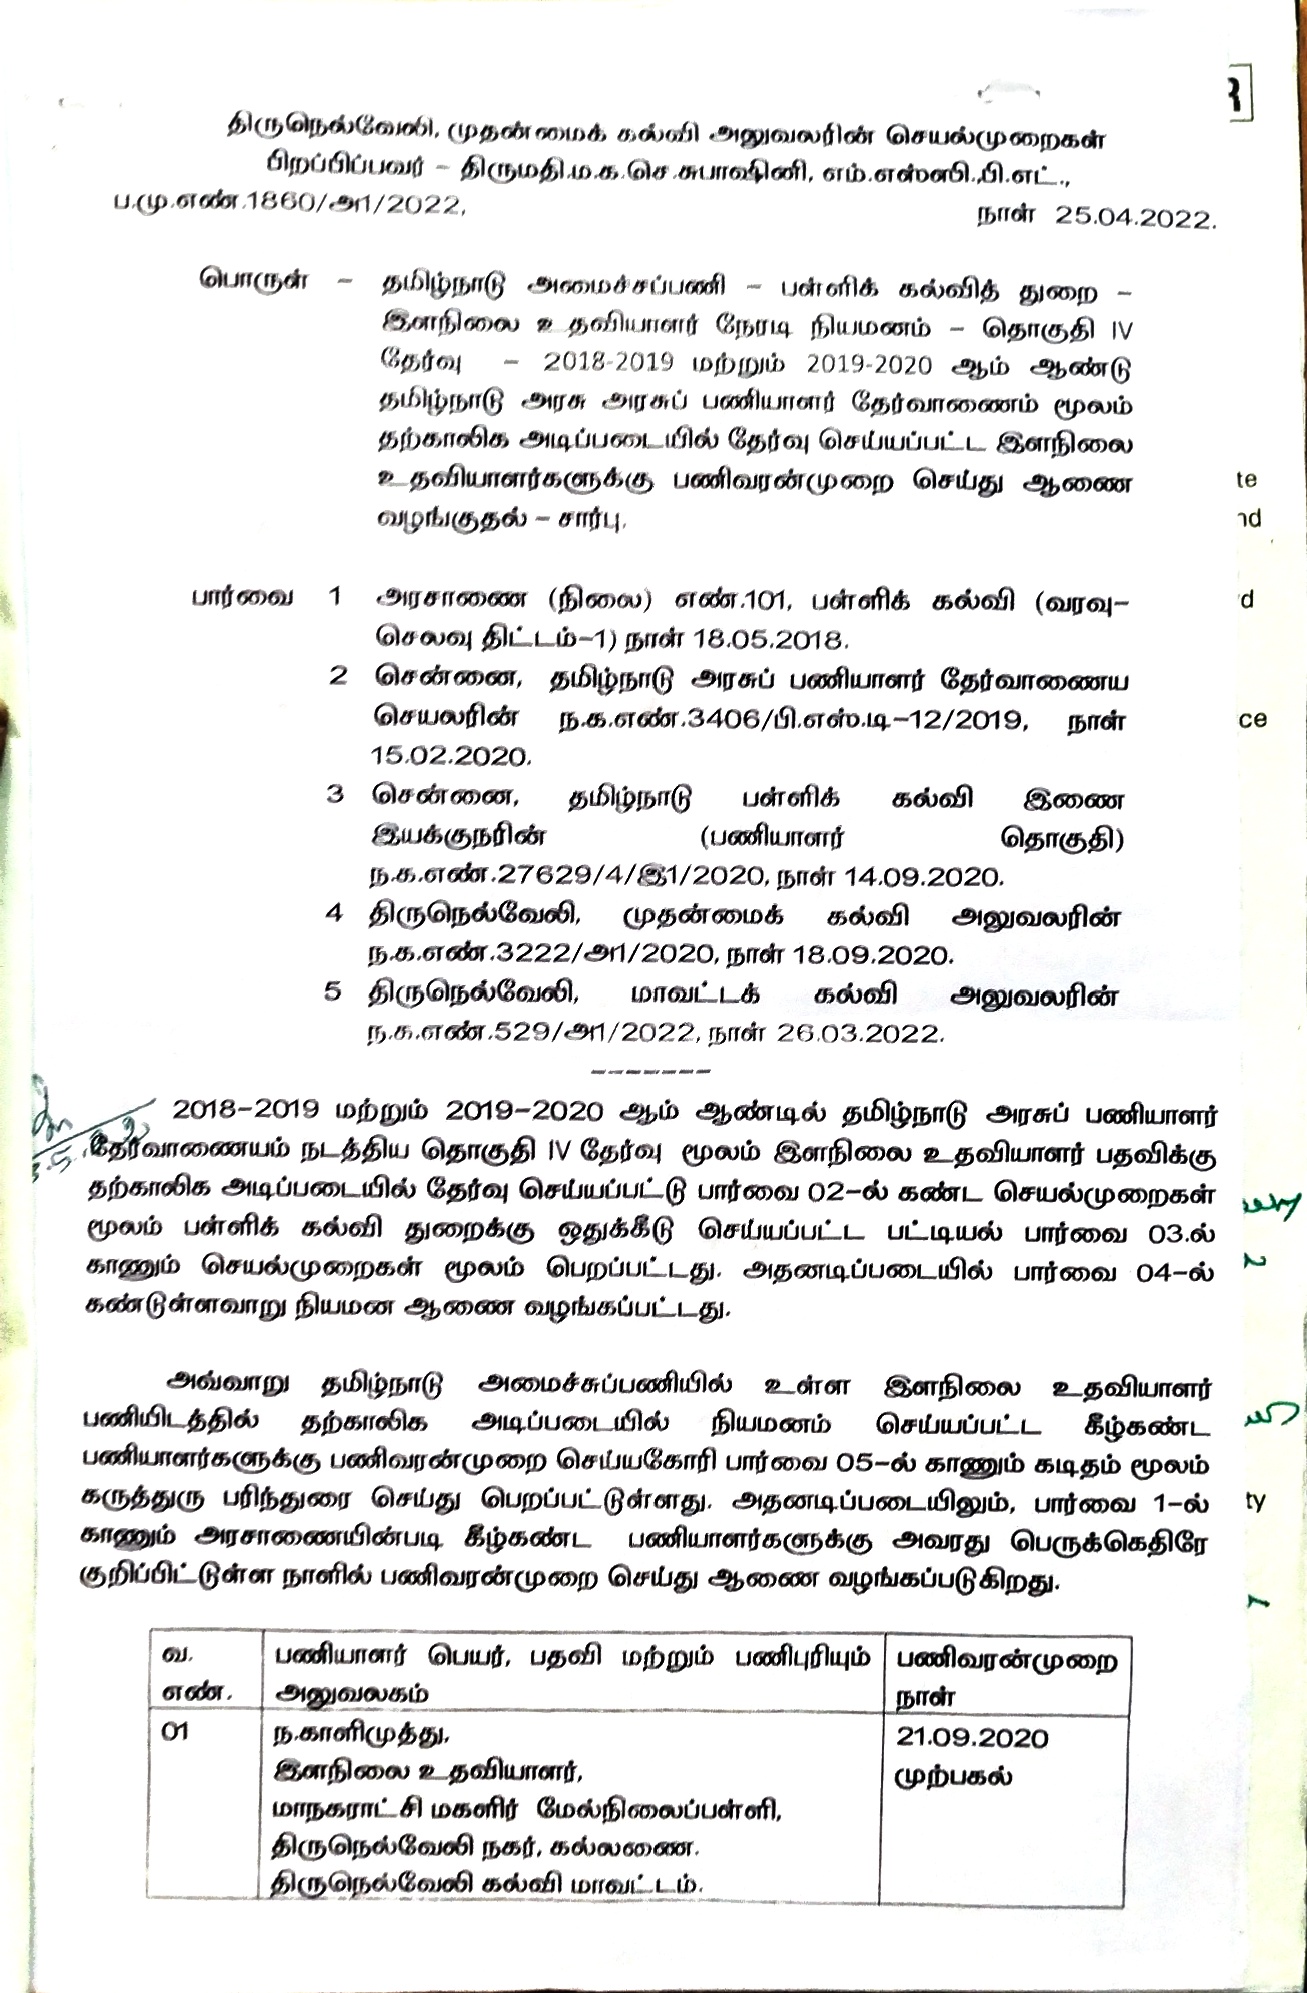 திருநெல்வேலி, முதன்மைக் கல்வி அலுவலரின் செயல்முறைகள்
பிறப்பிப்பவர் – திருமதி.ம.க.செ.சுபாஷினி, எம்.எஸ்ஸி.,பி.எட்.,
ப.மு.எண்.1860/அ1/2022, நாள் 25.04.2022.
பொருள் – தமிழ்நாடு அமைச்சப்பணி – பள்ளிக் கல்வித் துறை –
இளநிலை உதவியாளர் நேரடி நியமனம் – தொகுதி IV
தேர்வு – 2018-2019 மற்றும் 2019-2020 ஆம் ஆண்டு
தமிழ்நாடு அரசு அரசுப் பணியாளர் தேர்வாணைம் மூலம்
தற்காலிக அடிப்படையில் தேர்வு செய்யப்பட்ட இளநிலை
உதவியாளர்களுக்கு பணிவரன்முறை செய்து ஆணை
வழங்குதல் – சார்பு.
பார்வை 1 அரசாணை (நிலை) எண்.101, பள்ளிக் கல்வி (வரவு–
செலவு திட்டம்–1) நாள் 18.05.2018.
2 சென்னை, தமிழ்நாடு அரசுப் பணியாளர் தேர்வாணைய
செயலரின் ந.க.எண்.3406/பி.எஸ்.டி–12/2019, நாள்
15.02.2020.
3 சென்னை, தமிழ்நாடு பள்ளிக் கல்வி இணை
இயக்குநரின் (பணியாளர் தொகுதி)
ந.க.எண்.27629/4/இ1/2020, நாள் 14.09.2020.
4 திருநெல்வேலி, முதன்மைக் கல்வி அலுவலரின்
ந.க.எண்.3222/அ1/2020, நாள் 18.09.2020.
5 திருநெல்வேலி, மாவட்டக் கல்வி அலுவலரின்
ந.க.எண்.529/அ1/2022, நாள் 26.03.2022.
-------
2018–2019 மற்றும் 2019–2020 ஆம் ஆண்டில் தமிழ்நாடு அரசுப் பணியாளர்
தேர்வாணையம் நடத்திய தொகுதி IV தேர்வு மூலம் இளநிலை உதவியாளர் பதவிக்கு
தற்காலிக அடிப்படையில் தேர்வு செய்யப்பட்டு பார்வை 02–ல் கண்ட செயல்முறைகள்
மூலம் பள்ளிக் கல்வி துறைக்கு ஒதுக்கீடு செய்யப்பட்ட பட்டியல் பார்வை 03.ல்
காணும் செயல்முறைகள் மூலம் பெறப்பட்டது. அதனடிப்படையில் பார்வை 04–ல்
கண்டுள்ளவாறு நியமன ஆணை வழங்கப்பட்டது.
அவ்வாறு தமிழ்நாடு அமைச்சுப்பணியில் உள்ள இளநிலை உதவியாளர்
பணியிடத்தில் தற்காலிக அடிப்படையில் நியமனம் செய்யப்பட்ட கீழ்கண்ட
பணியாளர்களுக்கு பணிவரன்முறை செய்யகோரி பார்வை 05–ல் காணும் கடிதம் மூலம்
கருத்துரு பரிந்துரை செய்து பெறப்பட்டுள்ளது. அதனடிப்படையிலும், பார்வை 1–ல்
காணும் அரசாணையின்படி கீழ்கண்ட பணியாளர்களுக்கு அவரது பெருக்கெதிரே
குறிப்பிட்டுள்ள நாளில் பணிவரன்முறை செய்து ஆணை வழங்கப்படுகிறது.
வ. பணியாளர் பெயர், பதவி மற்றும் பணிபுரியும் பணிவரன்முறை
எண். அலுவலகம் நாள்
01 ந.காளிமுத்து, 21.09.2020
இளநிலை உதவியாளர், முற்பகல்
மாநகராட்சி மகளிர் மேல்நிலைப்பள்ளி,
திருநெல்வேலி நகர், கல்லணை.
திருநெல்வேலி கல்வி மாவட்டம்.
te
nd
ce
ty